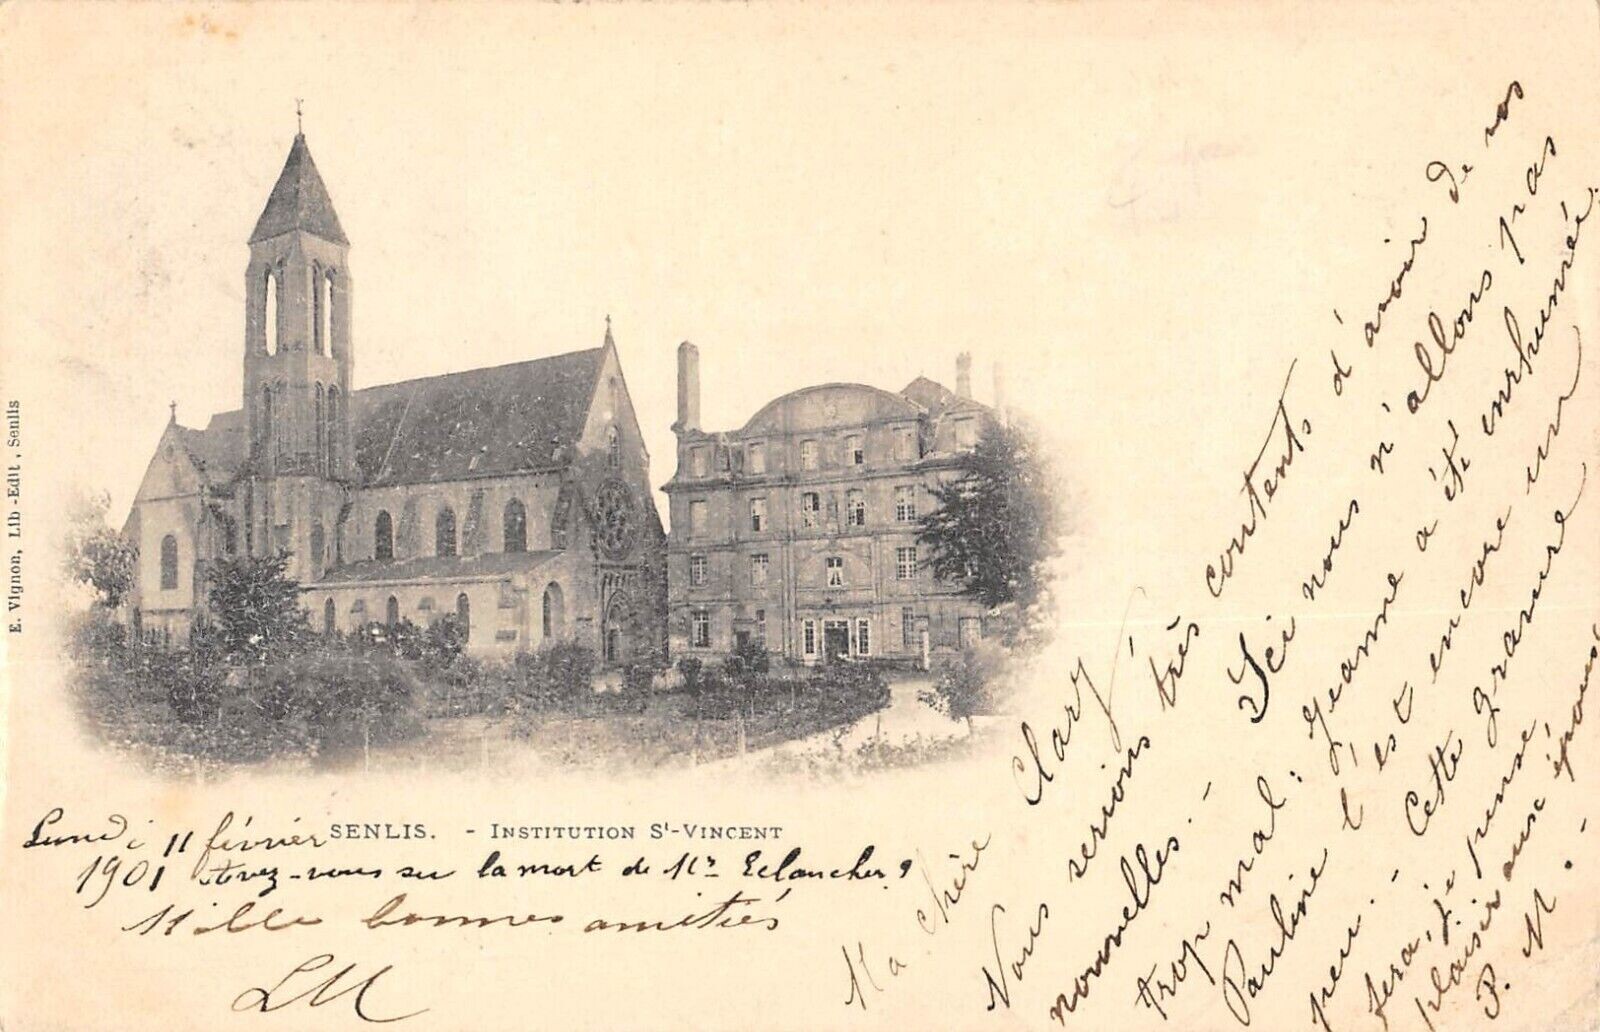 E. Vignon, Lib-Edit, Senlis
SENLIS. - INSTITUTION St-VINCENT
Lundi 11 février
1901 Avez-vous su la mort de Mr Eclancher?
Mille bonnes amitiés
LM
Ma chère Clary
Nous serions très contents d'avoir de vos
nouvelles. - Ici nous n'allons pas
trop mal: Jeanne a été enrhumée.
Pauline l'est encore un
peu. - Cette gravure
fera, je pense
plaisir aux époux
P. M. -